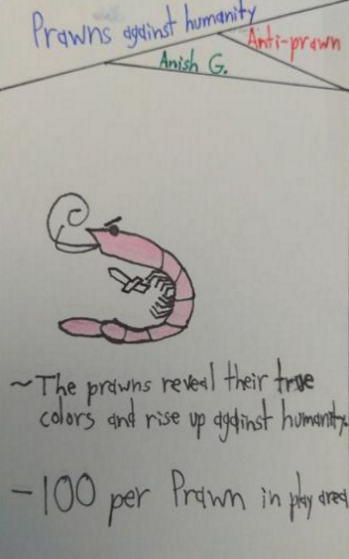 Prawns against humanity
Anti-prawn
Anish G.
~The prawns reveal their true
colors and rise up against humanity.
-100 per Prawn in play area